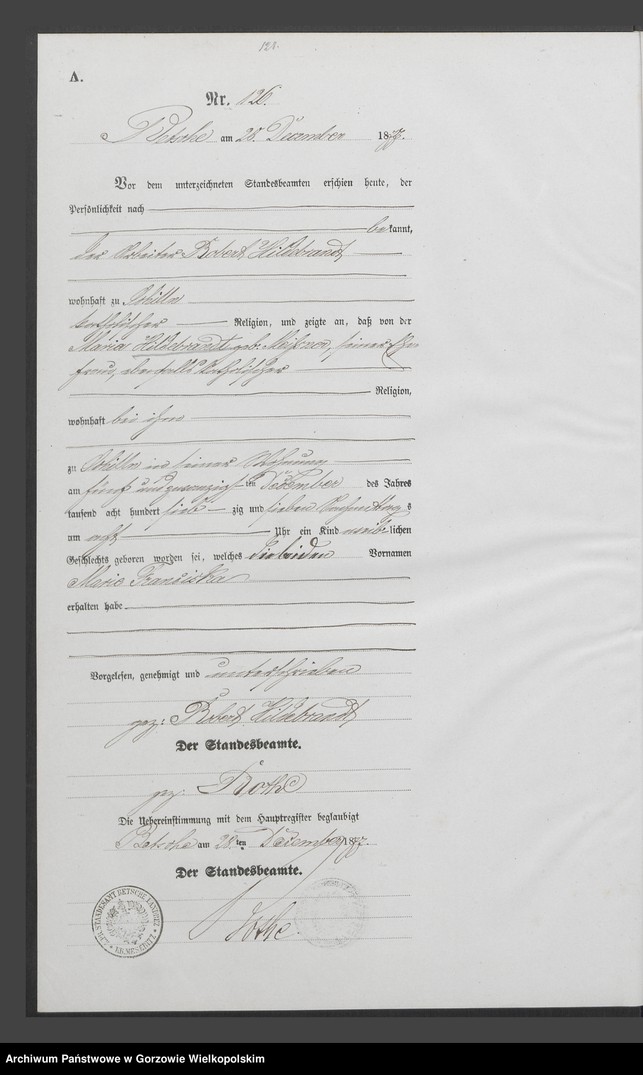 121.
A.
Nr. 126.
Betsche am 28. Dezember 1877.
Vor dem unterzeichneten Standesbeamten erschien heute, der
Persönlichkeit nach
bekannt,
der Arbeiter Robert Hildebrandt
wohnhaft zu Schilln
katholischer Religion, und zeigte an, daß von der
Maria Hildebrandt geb. Meißner, seiner Ehe
frau, ebenfalls katholischer
Religion,
wohnhaft bei ihm
zu Schilln in seiner Wohnung
am fünf und zwanzigsten Dezember des Jahres
tausend acht hundert siebzig und sieben Nachmittags
um acht Uhr ein Kind weiblichen
Geschlechts geboren worden sei, welches die beiden Vornamen
Marie Franziska
erhalten habe.
Vorgelesen, genehmigt und unterschrieben
gez: Robert Hildebrandt
Der Standesbeamte.
gez: Rothe
Die Uebereinstimmung mit dem Hauptregister beglaubigt
Betsche am 28.ten Dezember 1877.
Der Standesbeamte.
Rothe
KPR. STANDESAMT BETSCHE LANDBEZ. KR. MESERITZ
Archiwum Państwowe w Gorzowie Wielkopolskim